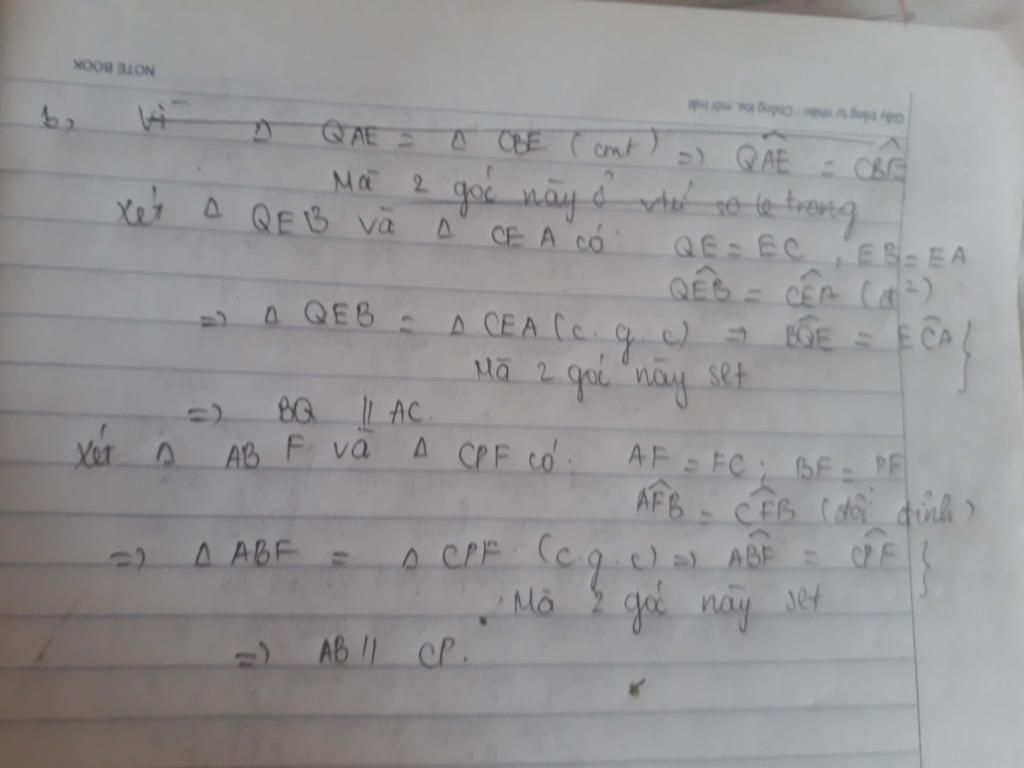 NOTE BOOK
Giấy trắng tự nhiên - Chống lóa, mỏi mắt
b, Vì Δ QAE = Δ CBE (cmt) => Q\hat{A}E = C\hat{B}E
Mà 2 góc này ở vtrí so le trong
Xét Δ QEB và Δ CEA có: QE = EC, EB = EA
Q\hat{E}B = C\hat{E}A (đ²)
=> Δ QEB = Δ CEA (c.g.c) => B\hat{Q}E = E\hat{C}A }
Mà 2 góc này slt
=> BQ // AC.
Xét Δ ABF và Δ CPF có: AF = FC; BF = PF
A\hat{F}B = C\hat{F}B (đối đỉnh)
=> Δ ABF = Δ CPF (c.g.c) => A\hat{B}F = C\hat{P}F }
Mà 2 góc này slt
=> AB // CP.